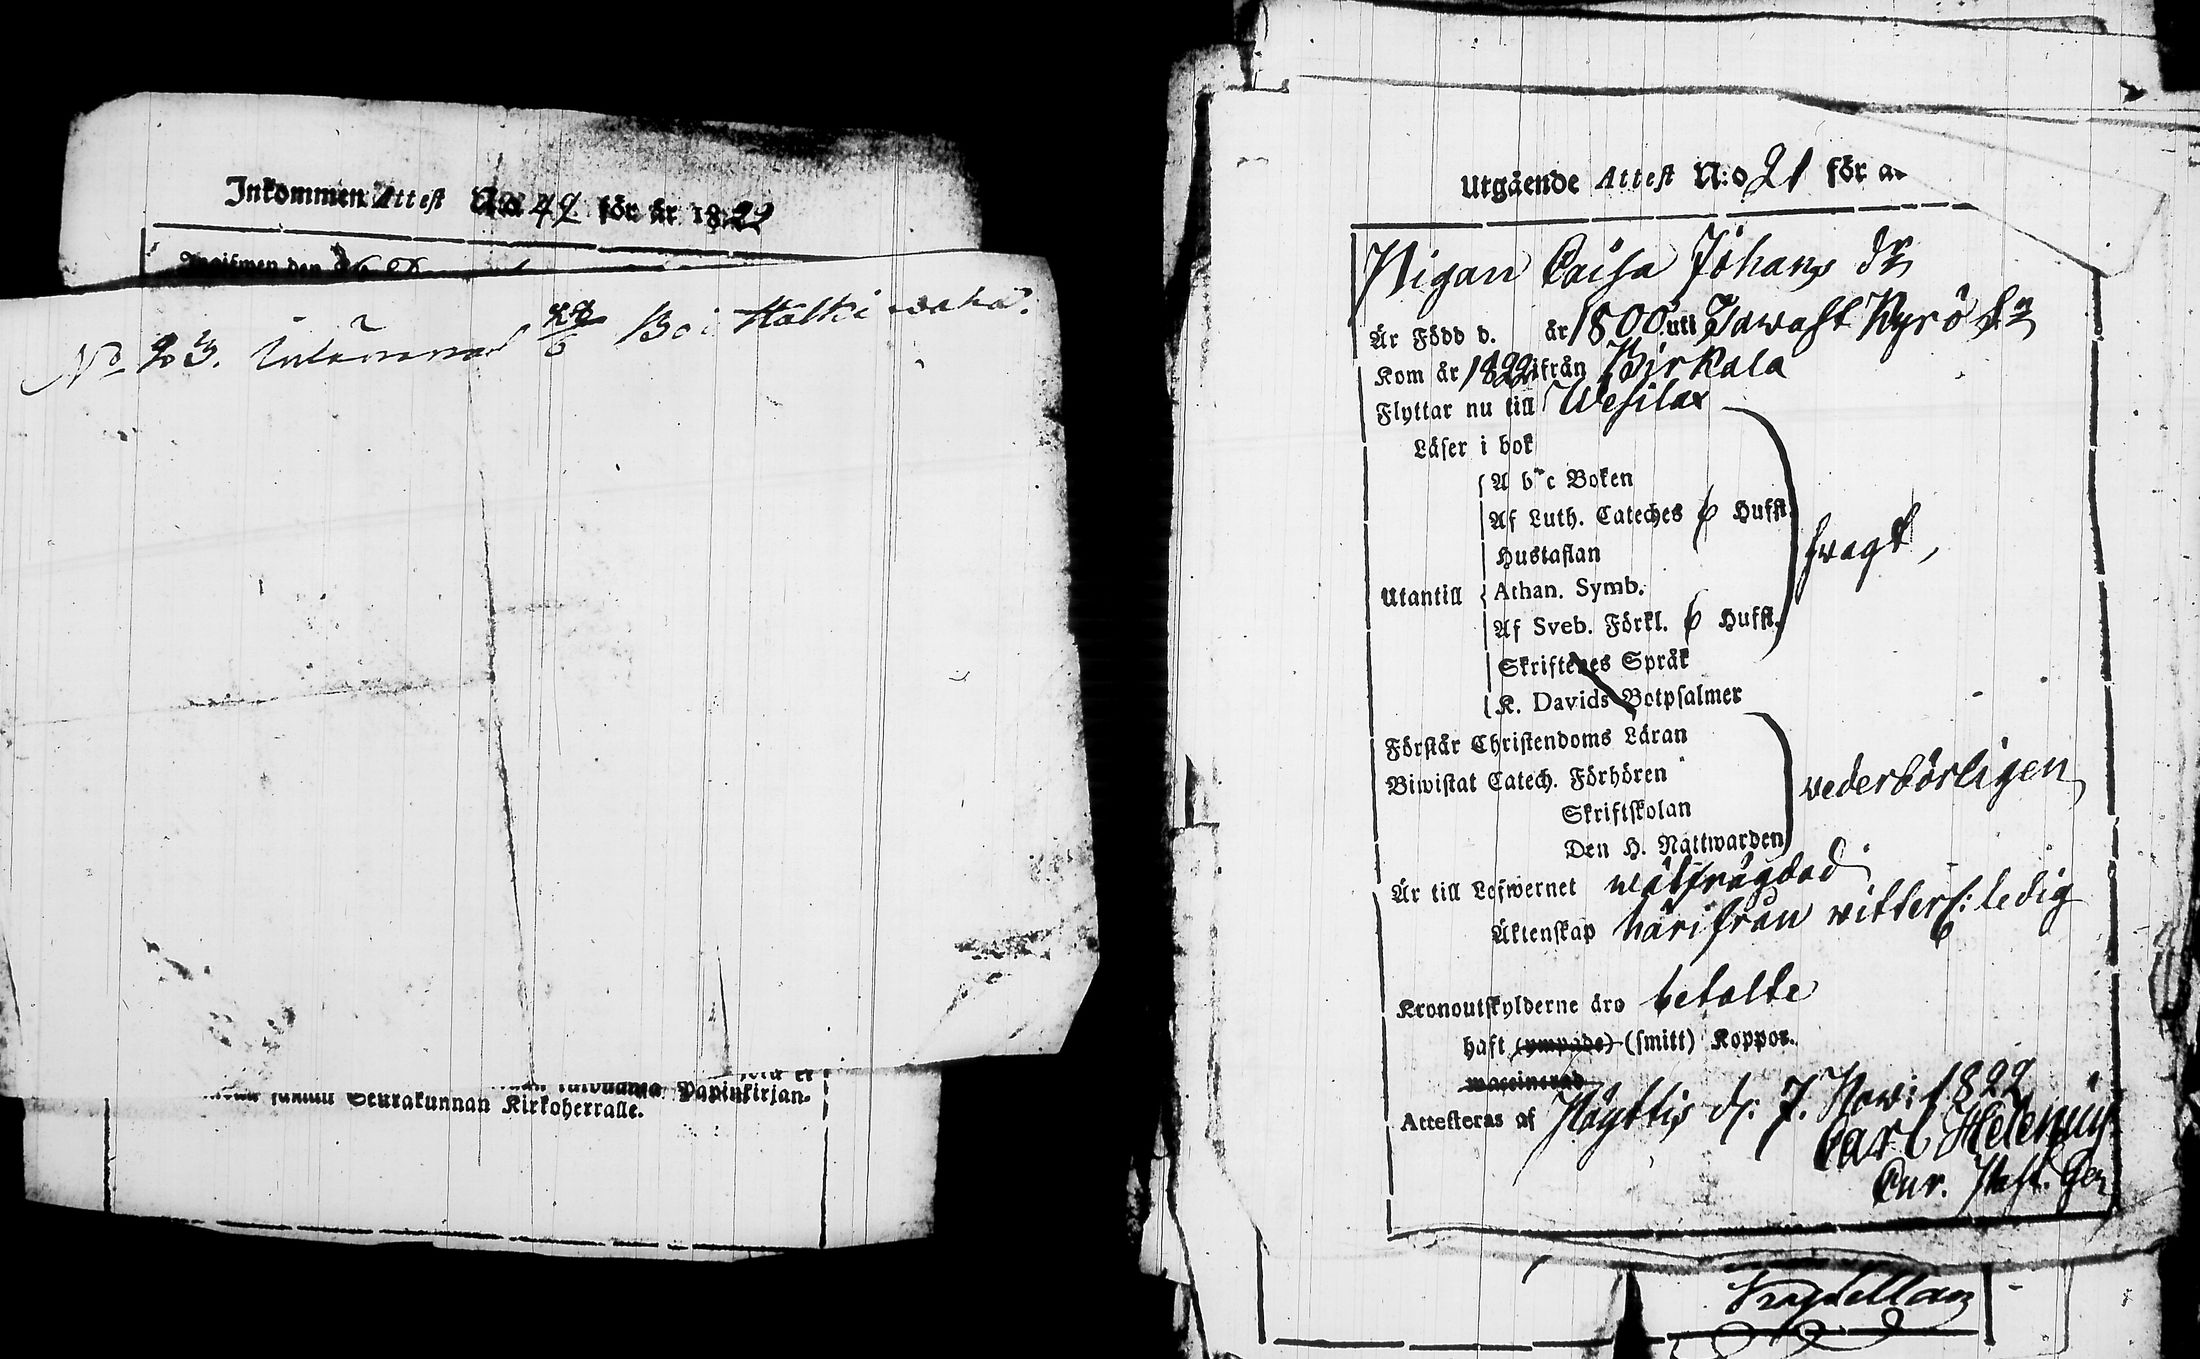 Inkommen Attest N:o 49 för år 1822
N:o 23. Inkommen Boi Halkiwaha.
Seurakunnan Kirkoherralle. Papinkirjan-
Utgående Attest N:o 21 för
Pigan Caisa Johans dr
Är Född d. år 1800 uti Tawast Kyrö sn
Kom år 1822 ifrån Birkala
Flyttar nu till Wesilax
Läser i bok
A b c Boken
Af Luth. Cateches 6 Hufst.
Hustaflan
Utantill Athan. Symb.
Af Sveb. Förkl. 6 Hufst.
swagt,
Skriftenes Språk
K. Davids Botpsalmer
Förstår Christendoms Läran
Biwistat Catech. Förhören
Skriftskolan
Den H. Nattwarden
wederbörligen
Är till Lefwernet wälfrägdad
Äktenskap härifrån witterl: ledig
Kronoutskylderne äro betalte
haft (ympade) (smitt) Koppor.
waccinerad
Attesteras af d. 7. Nov: 1822
Carl Helenius